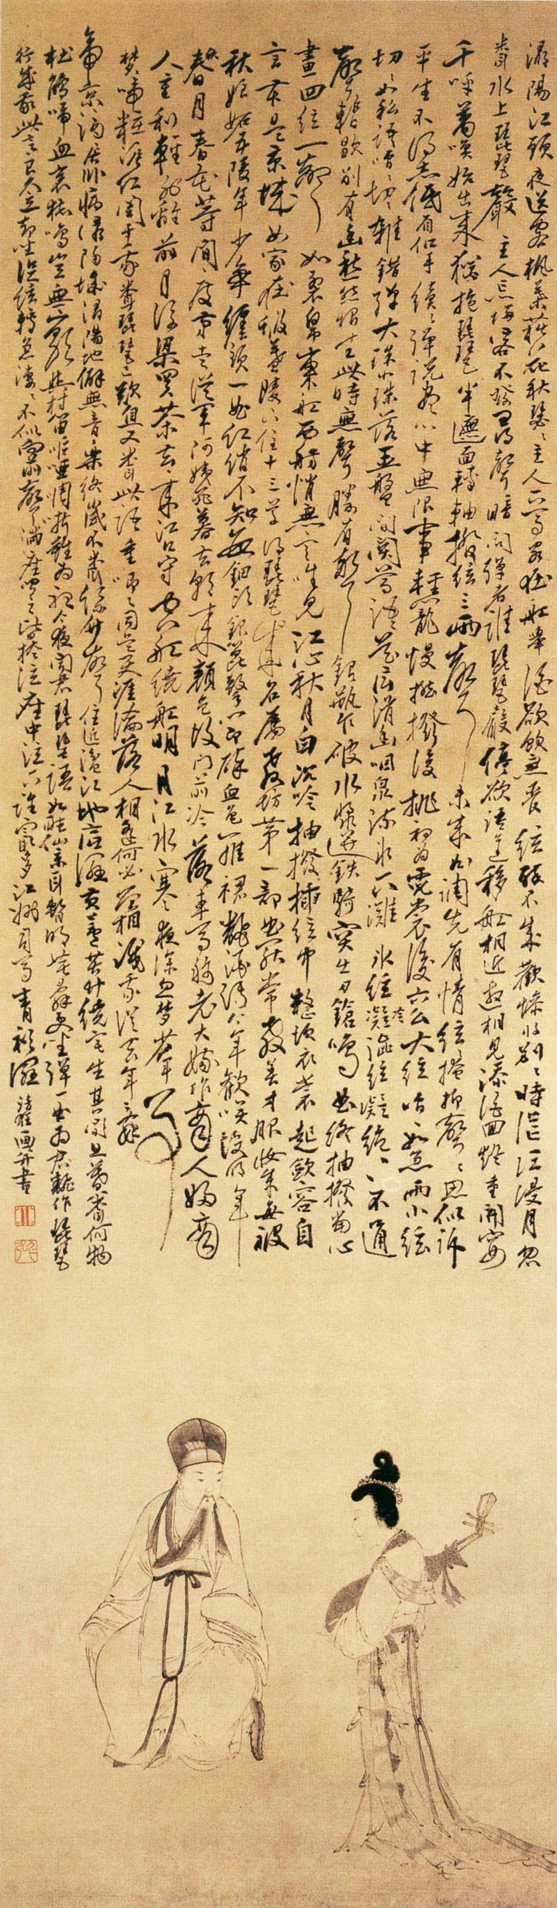 潯陽江頭夜送客楓葉荻花秋瑟瑟主人下馬客在船舉酒欲飲無管絃醉不成歡慘將別別時茫茫江浸月忽
聞水上琵琶聲主人忘歸客不發尋聲暗問彈者誰琵琶聲停欲語遲移船相近邀相見添酒回燈重開宴
千呼萬喚始出來猶抱琵琶半遮面轉軸撥絃三兩聲未成曲調先有情絃絃掩抑聲聲思似訴
平生不得志低眉信手續續彈說盡心中無限事輕攏慢撚撥復挑初為霓裳後六么大絃嘈嘈如急雨小絃
切切如私語嘈嘈切切雜錯彈大珠小珠落玉盤間關鶯語花底滑幽咽泉流水下灘冰絃冷澁絃凝絕凝絕不通
聲暫歇別有幽愁暗恨生此時無聲勝有聲銀瓶乍破水漿迸鐵騎突出刀鎗鳴曲終抽撥當心
畫四絃一聲如裂帛東船西舫悄無言唯見江心秋月白沉吟抽撥插絃中整頓衣裳起斂容自
言本是京城女家在蝦蟇陵下住十三學得琵琶成名屬教坊第一部曲罷常教善才服妝成每被
秋娘妬五陵年少爭纏頭一曲紅綃不知數鈿頭銀篦擊節碎血色羅裙翻酒污今年歡笑復明年
月春風等閒度弟走從軍阿姨死暮去朝來顏色故門前冷落車馬稀老大嫁作商人婦商
人重利輕別離前月浮梁買茶去去來江口守空船繞船明月江水寒夜深忽夢少年事
夢啼粧淚紅闌干我聞琵琶已歎息又聞此語重唧唧同是天涯淪落人相逢何必曾相識我從去年辭
帝京謫居臥病潯陽城潯陽地僻無音樂終歲不聞絲竹聲住近湓江地低濕黃蘆苦竹繞宅生其間旦暮聞何物
杜鵑啼血哀猿鳴豈無山歌與村笛嘔啞嘲哳難為聽今夜聞君琵琶語如聽仙樂耳暫明莫辭更坐彈一曲為君翻作琵琶
行感我此言良久立却坐促絃絃轉急淒淒不似向前聲滿座聞之皆掩泣座中泣下誰最多江州司馬青衫濕 清狂畫并書